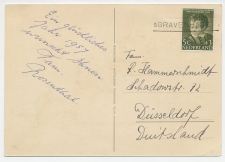 Ein glückliches
Jahr 1957
wünscht Ihnen
Fam.
Rosenthal
SGRAVE
NEDERLAND
Fam.
S. Hammerschmidt
Schadowstr. 72
Düsseldorf
Duitsland